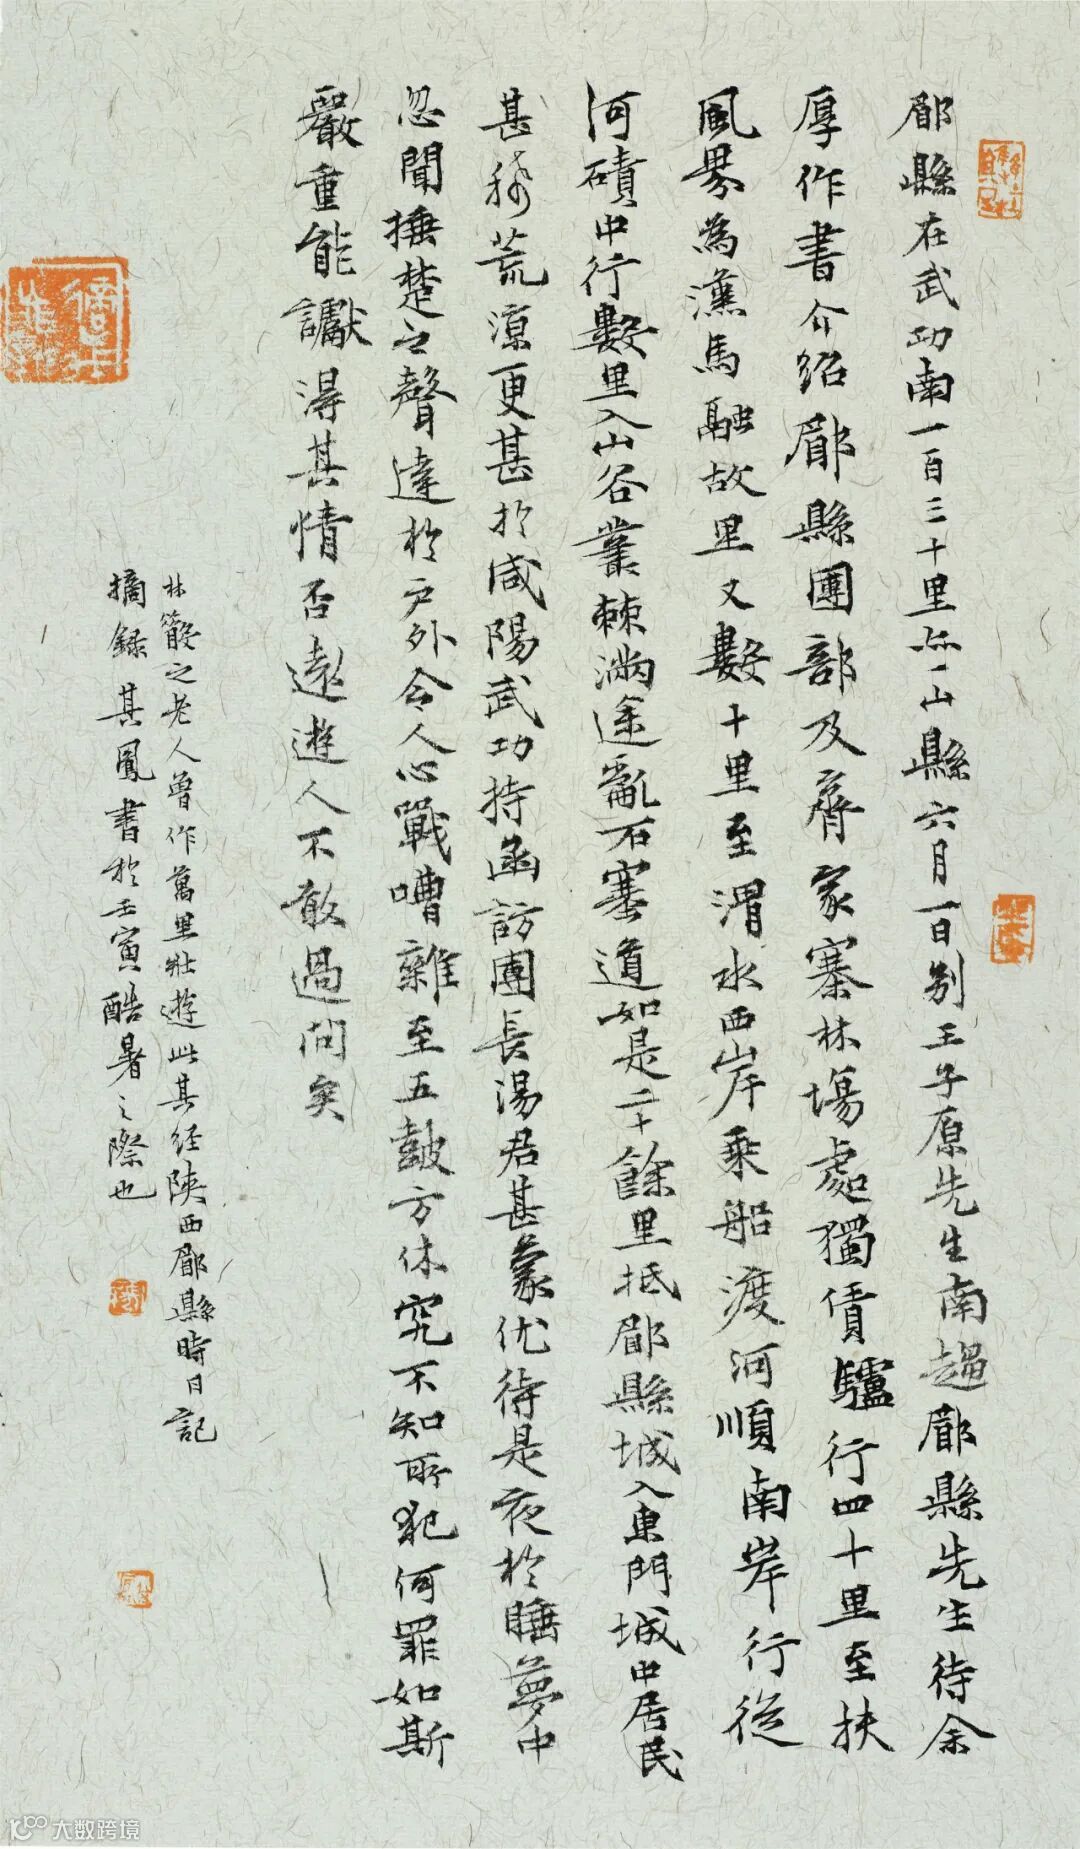 郿縣在武功南一百三十里亦一山縣六月一日別王子原先生南趨郿縣先生待余
厚作書介紹郿縣團部及齊家寨林場處獨賃驢行四十里至扶
風界為漢馬融故里又數十里至渭水西岸乘船渡河順南岸行從
河磧中行數里入山谷叢棘滿途亂石塞道如是二十餘里抵郿縣城入東門城中居民
甚稀荒涼更甚於咸陽武功持函訪團長湯君甚蒙优待是夜於睡夢中
忽聞捶楚之聲達於户外令人心戰嘈雜至五鼓方休究不知所犯何罪如斯
嚴重能讞得其情否遠遊人不敢過問矣
林散之老人曾作萬里壯遊此其經陝西郿縣時日記
摘錄 其鳳書於壬寅酷暑之際也
大数跨境